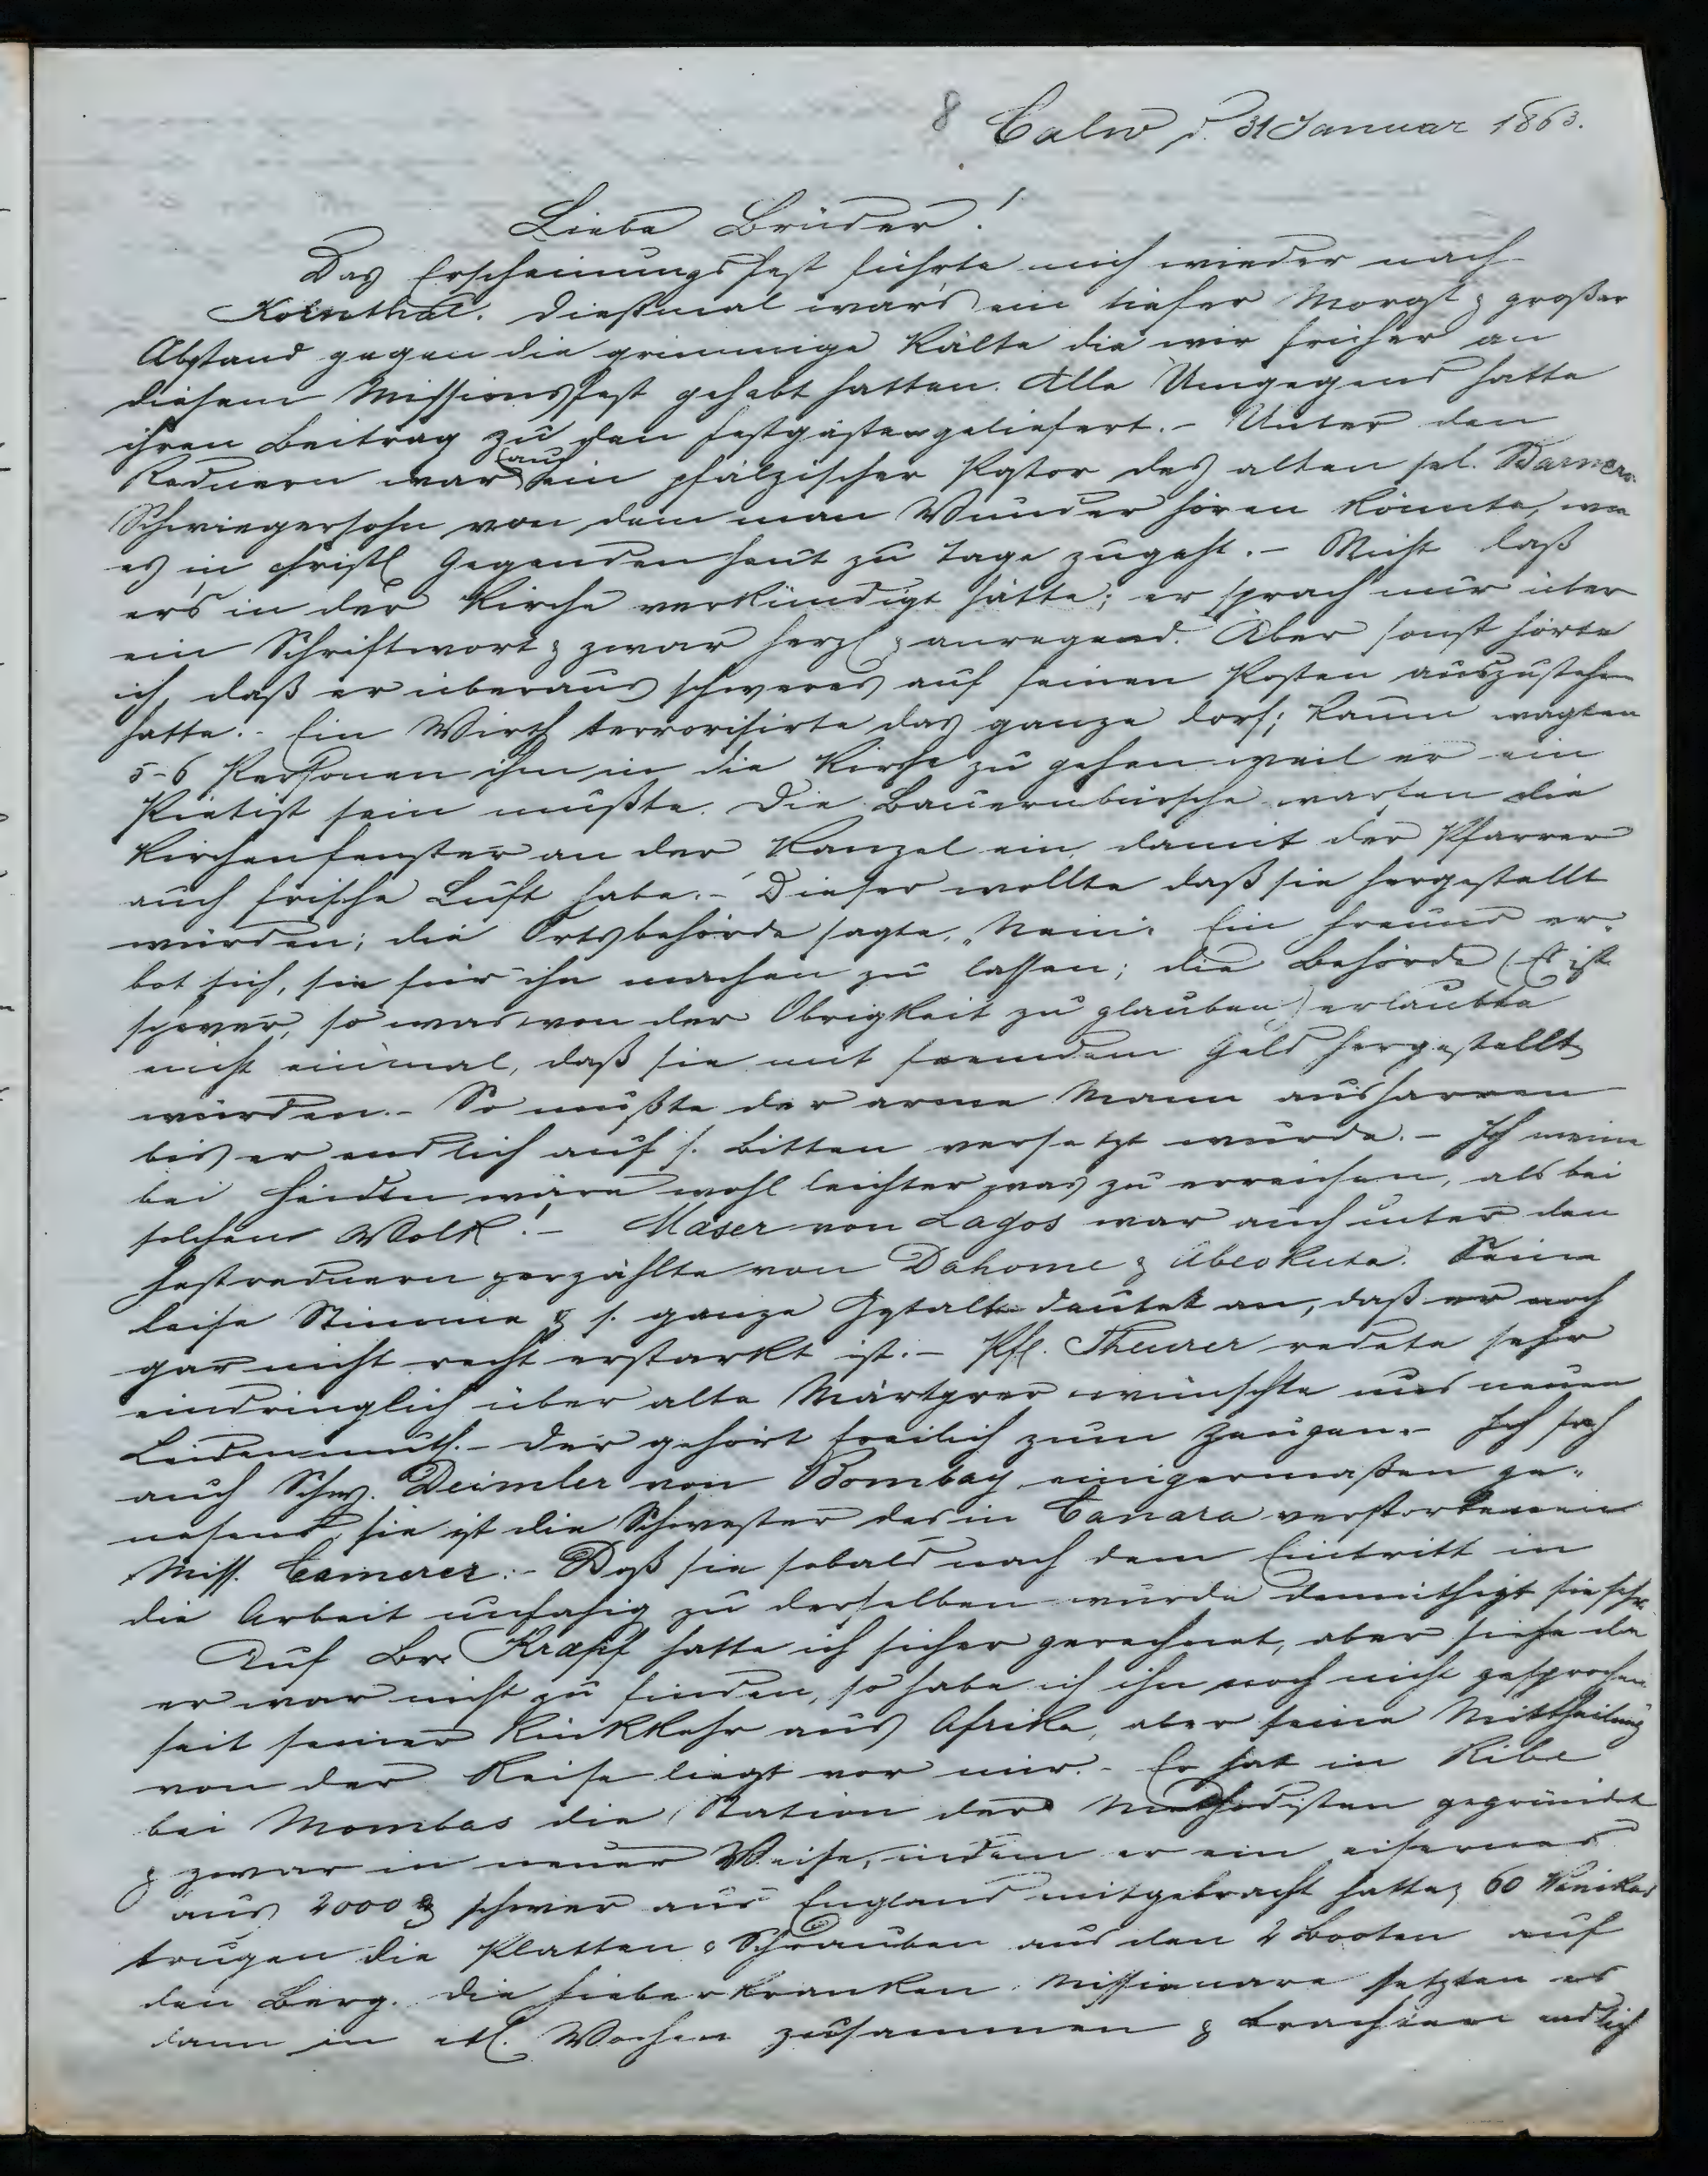 8 Calw d. 31 Januar 1863.
Liebe Brüder!
Das Erscheinungsfest führte mich wieder nach
Kornthal. Dießmal war's ein tiefer Morast & großer
Abstand gegen die grimmige Kälte die wir früher an
diesem Missionsfest gehabt hatten. Alle Umgegend hatte
ihren Beitrag zu den Festgästen geliefert. - Unter den
Rednern war auch ein pfälzischer Pastor des alten sel. Barners
Schwiegersohn von dem man Wunder hören könnte, wie
es in christl Gegenden heut zu Tage zugeht. - Nicht daß
er's in der Kirche verkündigt hätte; er sprach nur über
ein Schriftwort & zwar herzl & anregend. Aber sonst hörte
ich, daß er überaus schweres auf seinen Posten auszustehen
hatte. - Ein Wirth terrorisirte das ganze Dorf; kaum wagten
5-6 Personen ihm in die Kirche zu gehen weil er ein
Pietist sein mußte. Die Bauernbursche warfen die
Kirchenfenster an der Kanzel ein, damit der Pfarrer
auch frische Luft habe. - Dieser wollte daß sie hergestellt
würden; die Ortsbehörde sagte, "Nein". Ein Freund er-
bot sich, sie für ihn machen zu lassen; die Behörde (Es ist
schwer, so was von der Obrigkeit zu glauben) erlaubte
nicht einmal, daß sie mit fremdem Geld hergestellt
würden. - So mußte der arme Mann ausharren
bis er endlich auf s. Bitten versetzt wurde. - Ich meine
bei Heiden wäre wohl leichter was zu erreichen, als bei
solchem Volk! - Maser von Lagos war auch unter den
Festrednern & erzählte von Dahome & Abeokuta. Seine
leise Stimme & s. ganze Gestalt deutet an, daß er noch
gar nicht recht erstarkt ist. - Pf. Theurer redete sehr
eindringlich über alte Märtyrer wünschte uns neuen
Leidenmuth. - der gehört freilich zum Zeugen. - Ich sah
auch Schw. Deimler von Bombay einigermaßen ge-
nesend, sie ist die Schwester des in Canara verstorbenen
Miss. Camerer. - Daß sie sobald nach dem Eintritt in
die Arbeit unfähig zu derselben wurde demüthigt sie sehr.
Auf Br. Krapf hatte ich sicher gerechnet, aber siehe da
er war nicht zu finden, so habe ich ihn noch nicht gesprochen
seit seiner Rückkehr aus Afrika, aber seine Mittheilung
von der Reise liegt vor mir. - Er hat in Ribe
bei Mombas die Station der Methodisten gegründet
& zwar in neuer Weise, indem er ein eisernes
Haus 2000 ℔ schwer aus England mitgebracht hatte, 60 Wanikas
trugen die Platten & Schrauben aus den 2 Booten auf
den Berg. Die fieberkranken Missionare setzten es
dann in etl. Wochen zusammen & brachten endlich